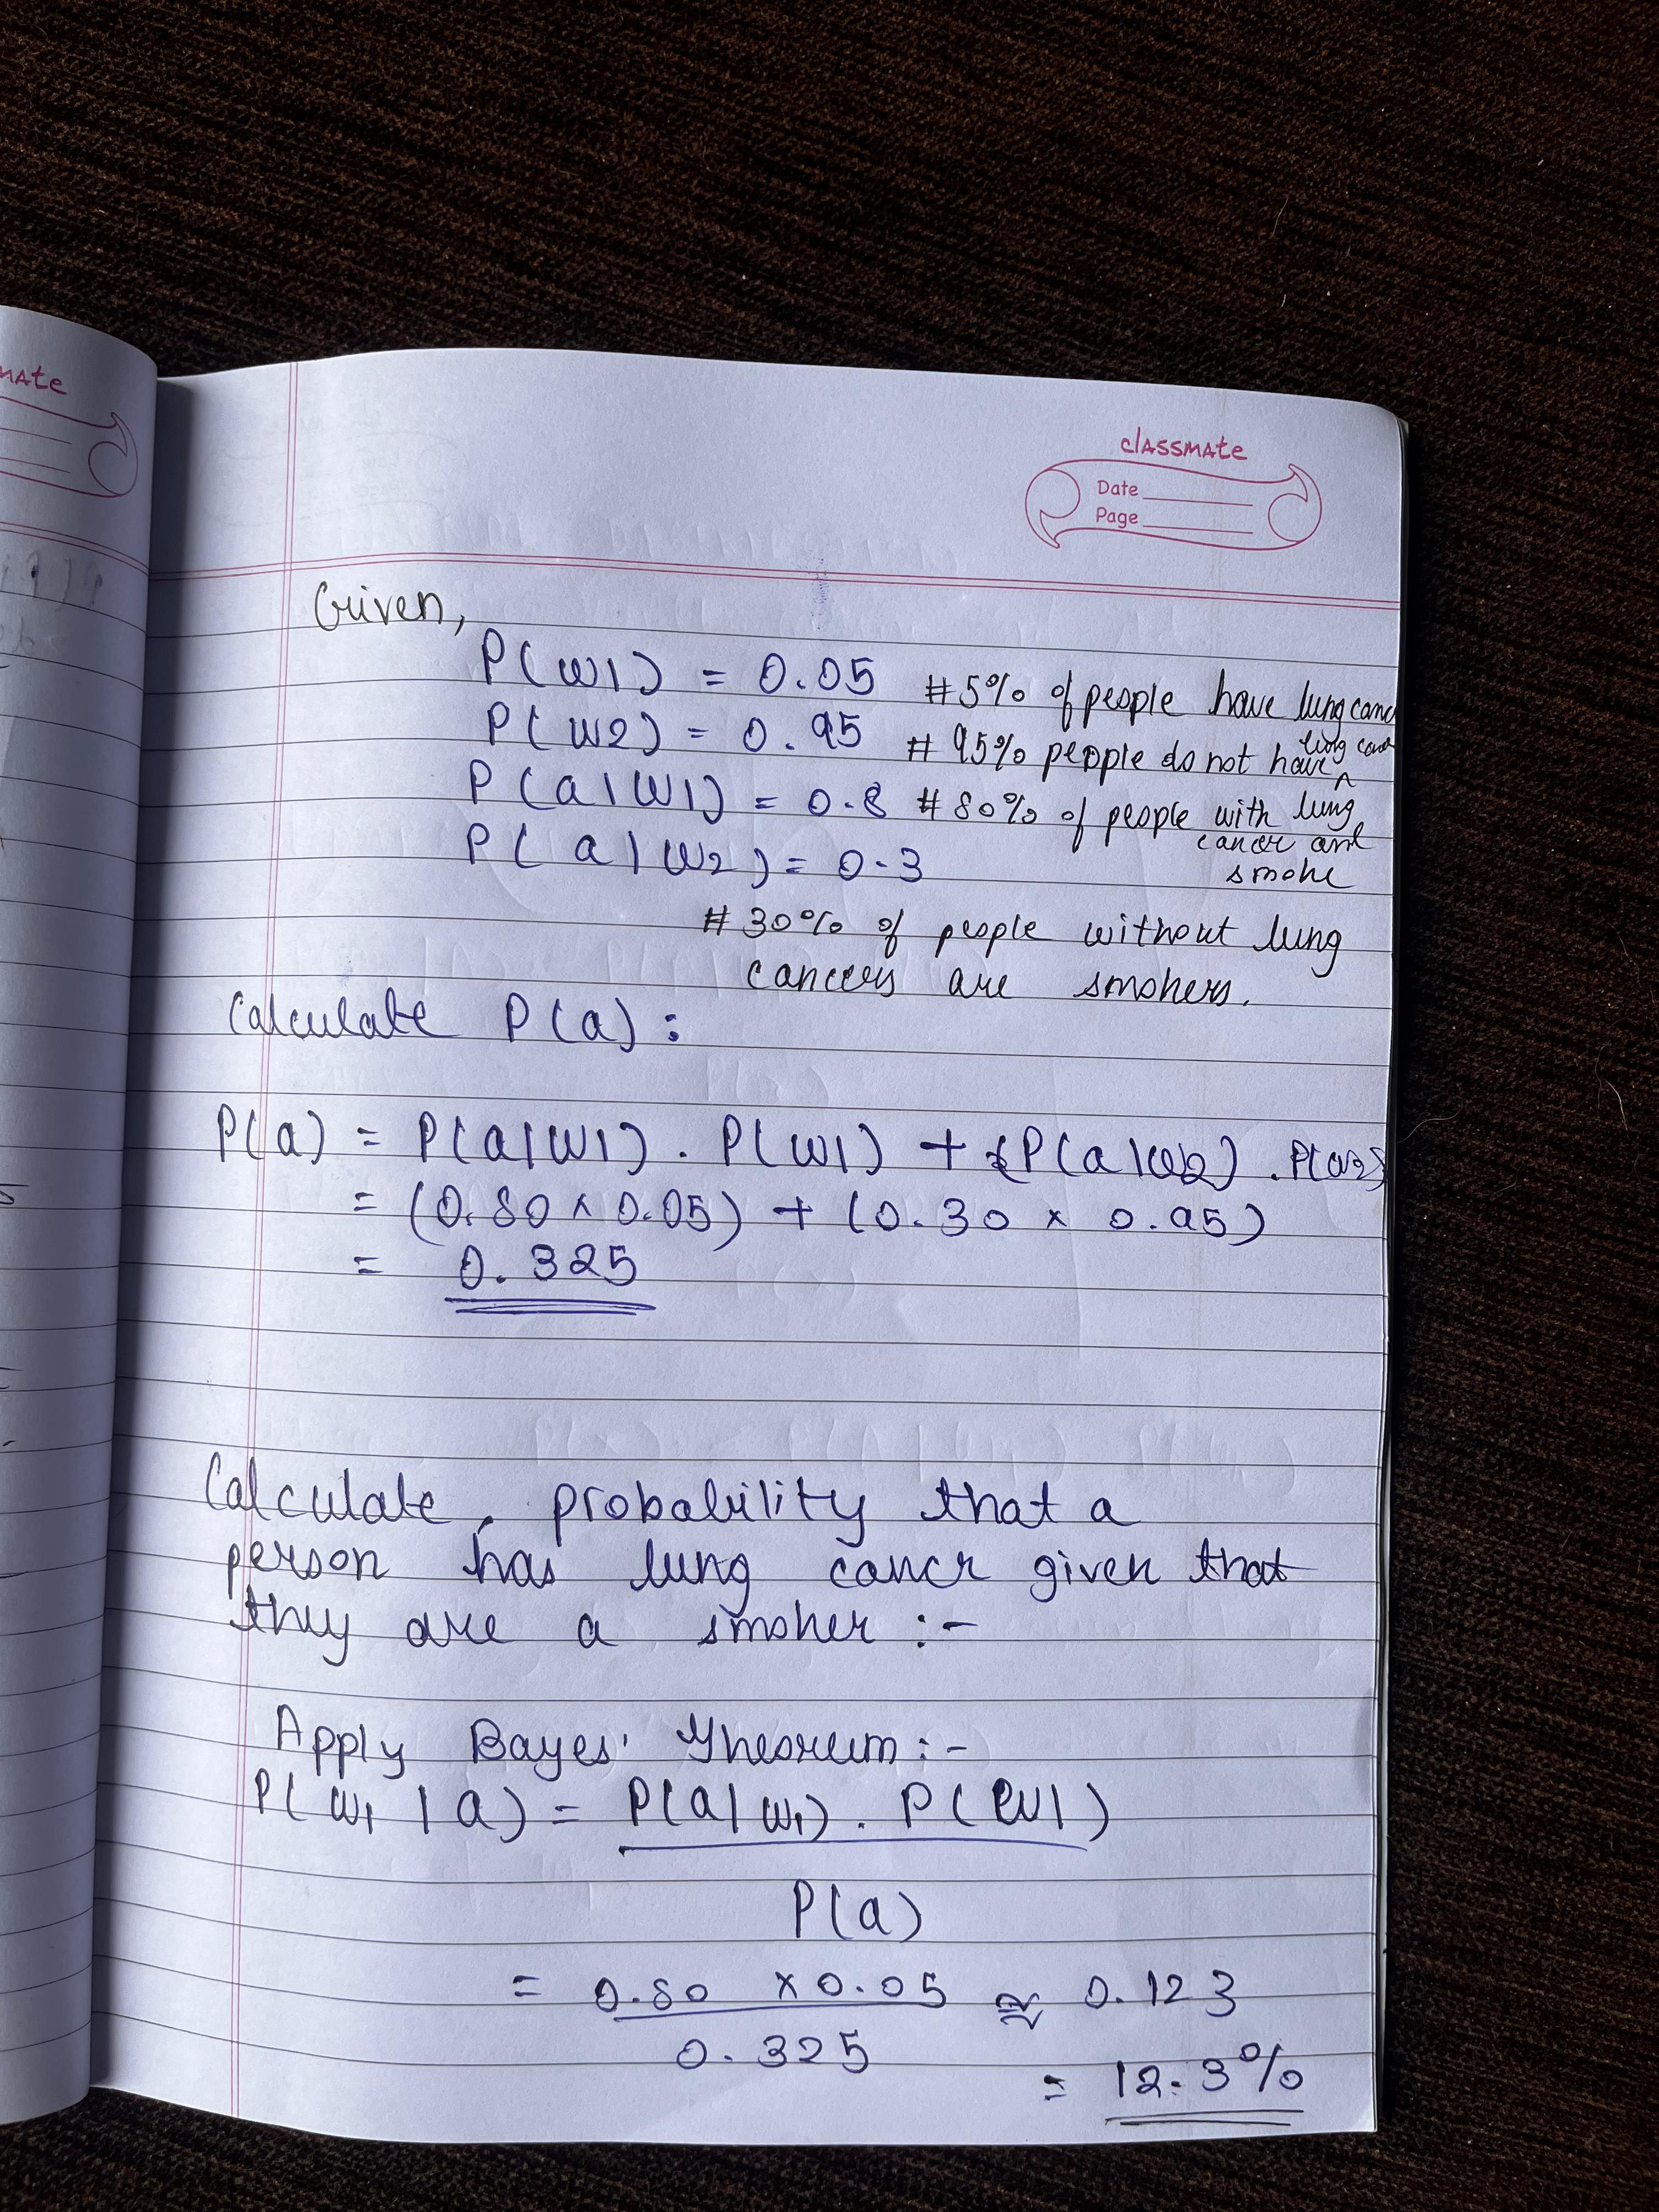 mate
classmate
Date
Page
Given,
P(W1) = 0.05 #5% of people have lung canc
P(W2) = 0.95 # 95% people do not have lung canc
P(a|W1) = 0.8 # 80% of people with lung
cancer and
smoke
P(a|W2) = 0.3
# 30% of people without lung
cancers are smokers.
Calculate P(a):
P(a) = P(a|W1) . P(W1) + {P(a|W2) . P(W2)}
= (0.80 x 0.05) + (0.30 x 0.95)
= 0.325
Calculate probability that a
person has lung cancr given that
they are a smoker :-
Apply Bayes' Theorem :-
P(W1 | a) = P(a|W1) . P(W1)
P(a)
= 0.80 x 0.05 ≅ 0.123
0.325
= 12.3%